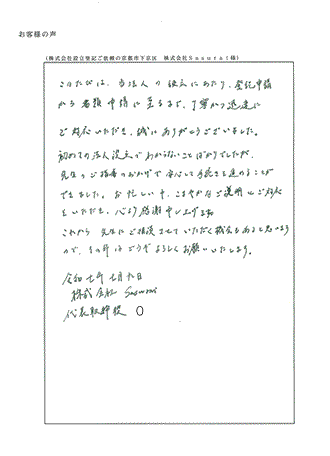 お客様の声
(株式会社設立登記ご依頼の京都市下京区　株式会社Ｓａｓｕｒａｉ様)
このたびは、当法人の設立にあたり、登記申請
から各種申請に至るまで、丁寧かつ迅速に
ご対応いただき、誠にありがとうございました。
初めての法人設立でわからないことばかりでしたが、
先生のご指導のおかげで安心して手続きを進めることが
できました。お忙しい中、こまやかなご説明とご対応
をいただき、心より感謝申し上げます。
これから先生にご相談させていただく機会もあると思います
ので、その折はどうぞよろしくお願いいたします。
令和七年七月九日
株式会社
代表取締役 〇